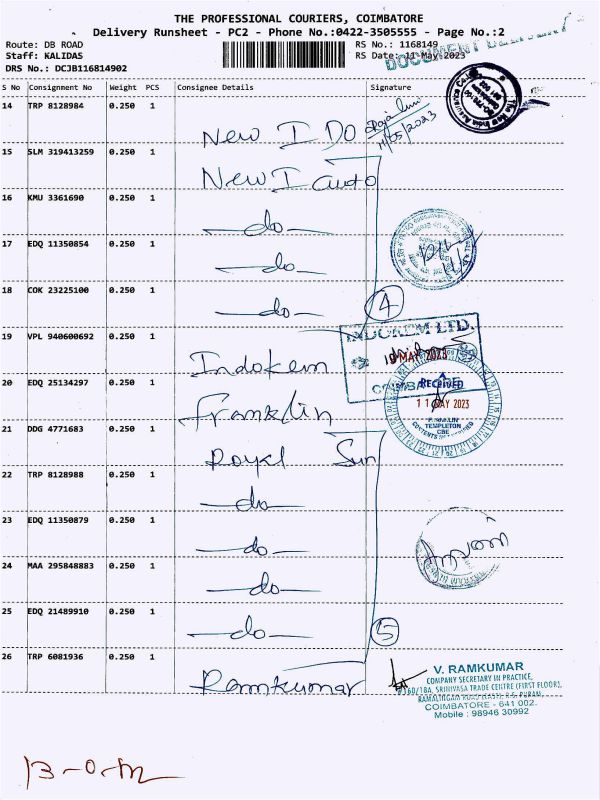 THE PROFESSIONAL COURIERS, COIMBATORE
Delivery Runsheet - PC2 - Phone No.:0422-3505555 - Page No.:2
Route: DB ROAD
Staff: KALIDAS
DRS No.: DCJB116814902
RS No.: 1168149
RS Date: 11 May,2023
DOCUMENT
S No Consignment No Weight PCS Consignee Details Signature
14 TRP 8128984 0.250 1
New I DO
11/05/2023
15 SLM 319413259 0.250 1
New I auto
16 KMU 3361690 0.250 1
-do-
17 EDQ 11350854 0.250 1
-do-
18 COK 23225100 0.250 1
-do-
4
19 VPL 940600692 0.250 1
Indokem
INDOKEM LTD.
MAY 2023
20 EDQ 25134297 0.250 1
Franklin
RECEIVED
11 MAY 2023
TEMPLETON
CBE
21 DDG 4771683 0.250 1
Royal Sun
22 TRP 8128988 0.250 1
-do-
23 EDQ 11350879 0.250 1
-do-
24 MAA 295848883 0.250 1
-do-
25 EDQ 21489910 0.250 1
-do-
5
26 TRP 6081936 0.250 1
Ramkumar
V. RAMKUMAR
COMPANY SECRETARY IN PRACTICE,
SRINIVASA TRADE CENTRE (FIRST FLOOR),
COIMBATORE - 641 002.
Mobile : 98946 30992